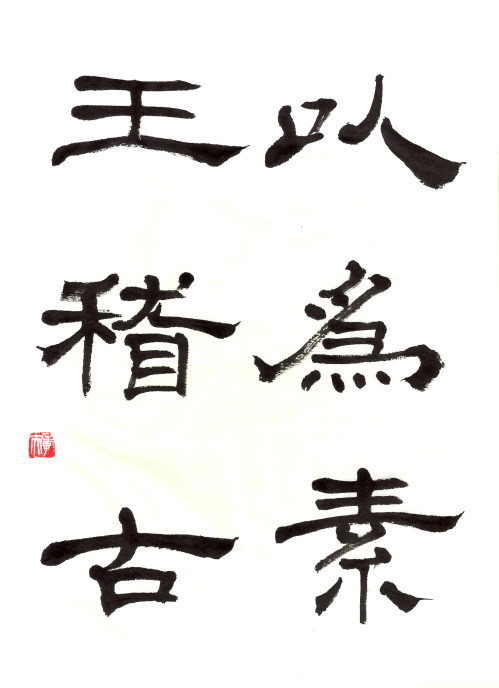 以為素
王稽古